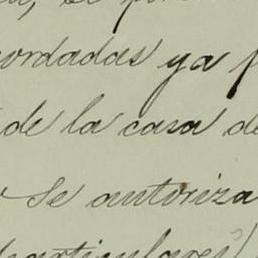 ordadas ya
de la casa de
se autoriza
particulares)